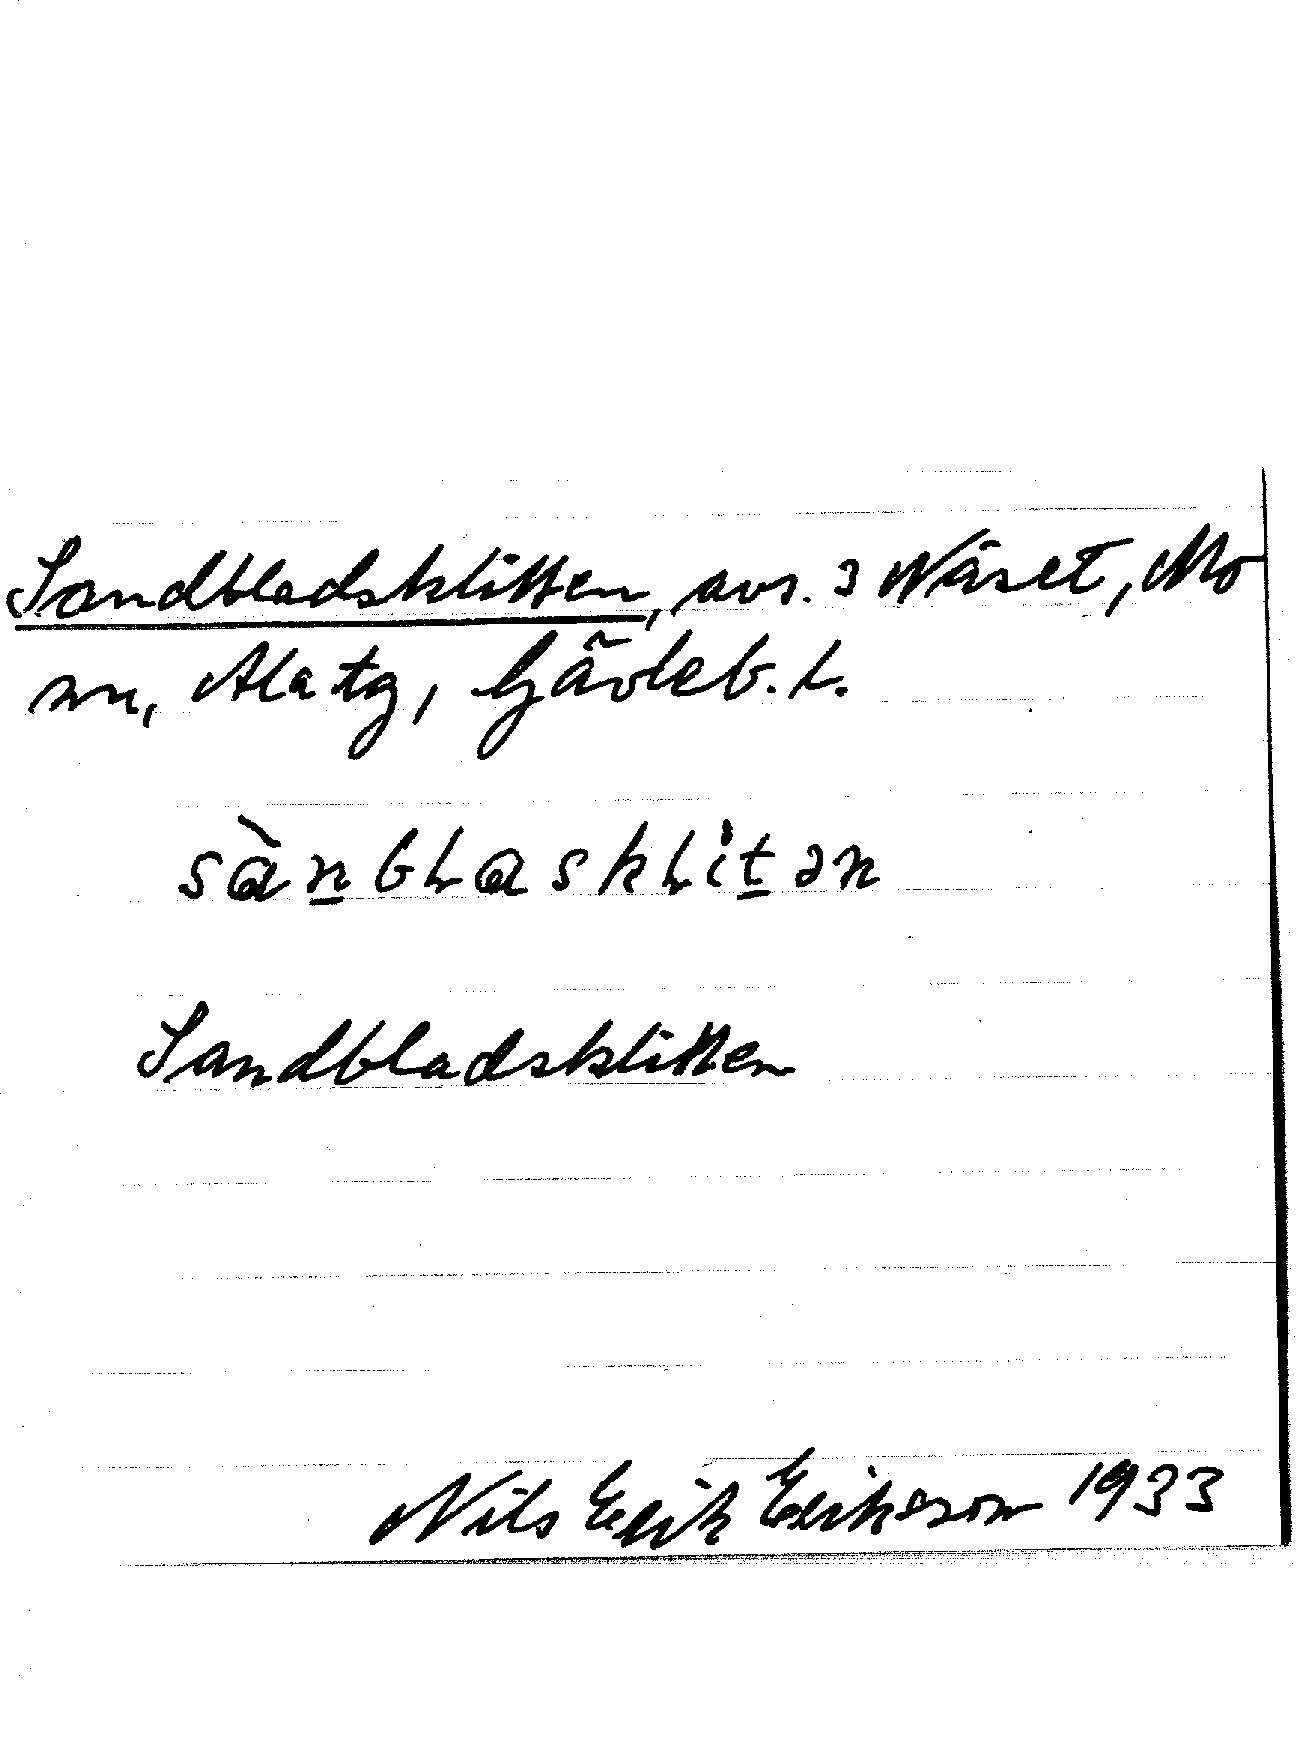 Sandbladsklitten, avs. 3 Näset, Mo
sn, Ala tg, Gävleb. l.
sàn̲bLaskLit̲ən
Sandbladsklitten
Nils Erik Erikson 1933